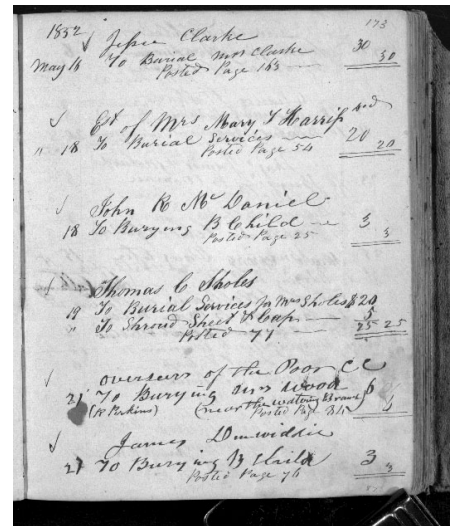 1852 173
Jessie Clarke
May 16 To Burial Mrs Clarke 30 30
Posted Page 163
Est of Mrs Mary T Harris
" 18 To Burial Services 20 20
Posted Page 54
John R Mc Daniel
18 To Burying B Child 3 3
Posted Page 25
Thomas C Sholes
19 To Burial Services for Mrs Sholes $20
" To Shroud Sheet & Cap 5
Posted 77 25 25
overseers of the Poor CC
21 To Burying Wood
(R Perkins) (near the
Posted Page
James Dunwiddie
21 To Burying B Child 3 3
Posted Page 76